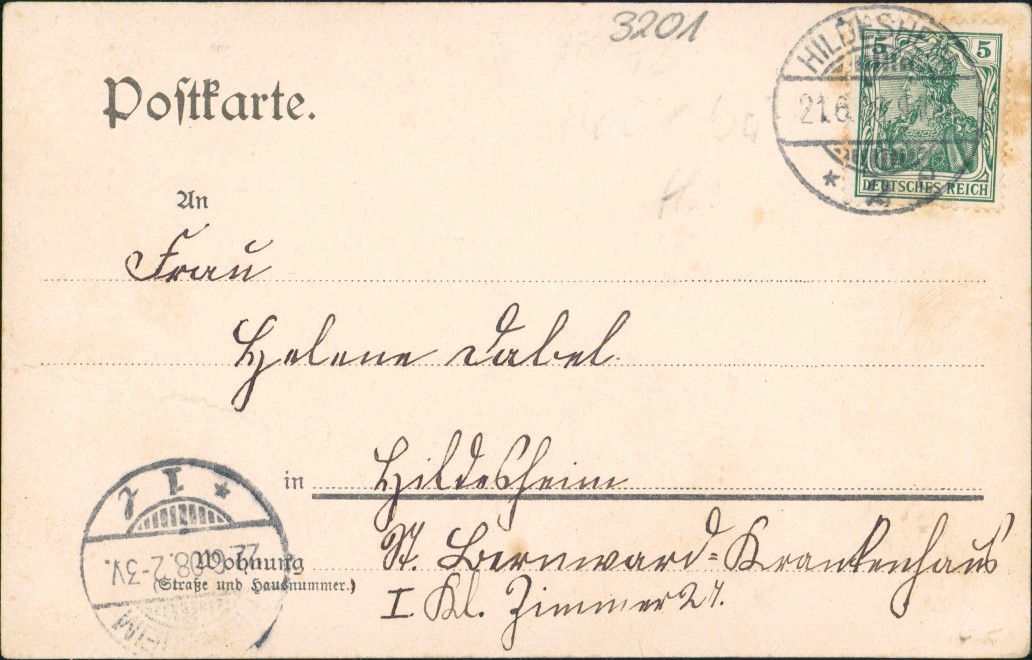 3201
Postkarte.
HILDESHEIM
21.6
5 5
DEUTSCHES REICH
An
Frau
Helene Dabel
in Hildesheim
Wohnung
(Straße und Hausnummer.)
St. Bernward-Krankenhaus
I Kl. Zimmer 27.
22.6.08.2-3V.